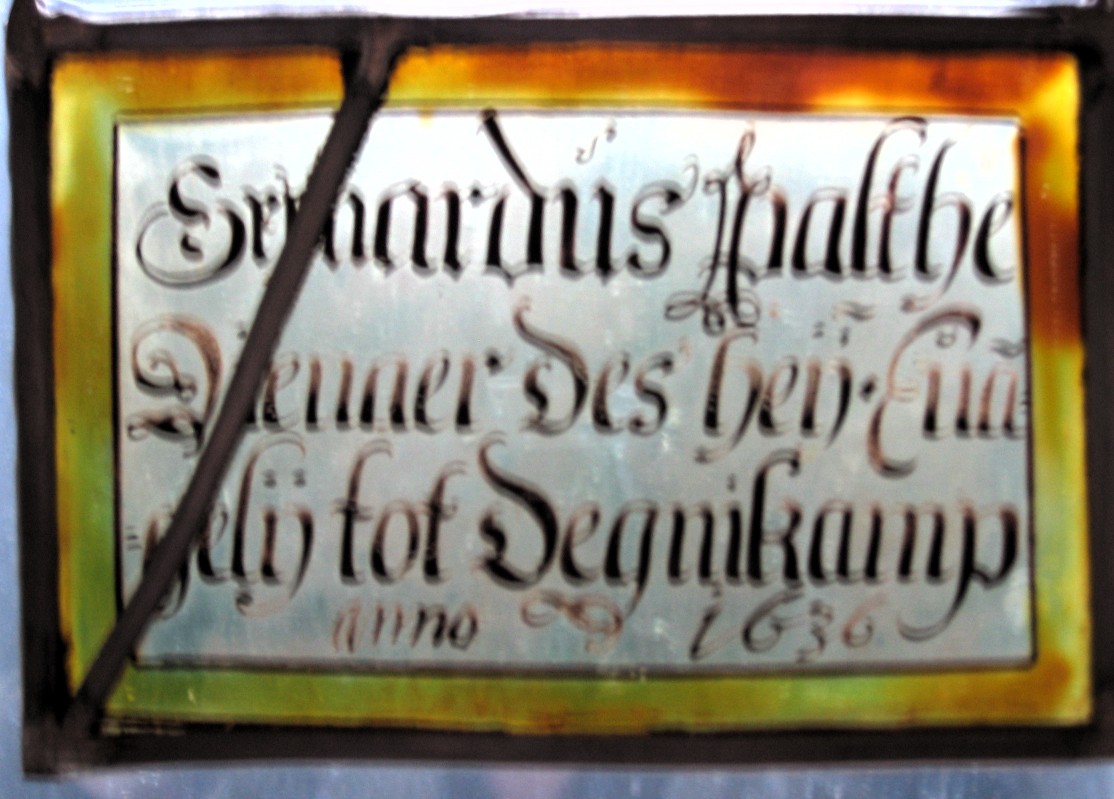 Bernardus Palthe
Dienaer des heij: Eua
gelij tot Degnikamp
anno 1636